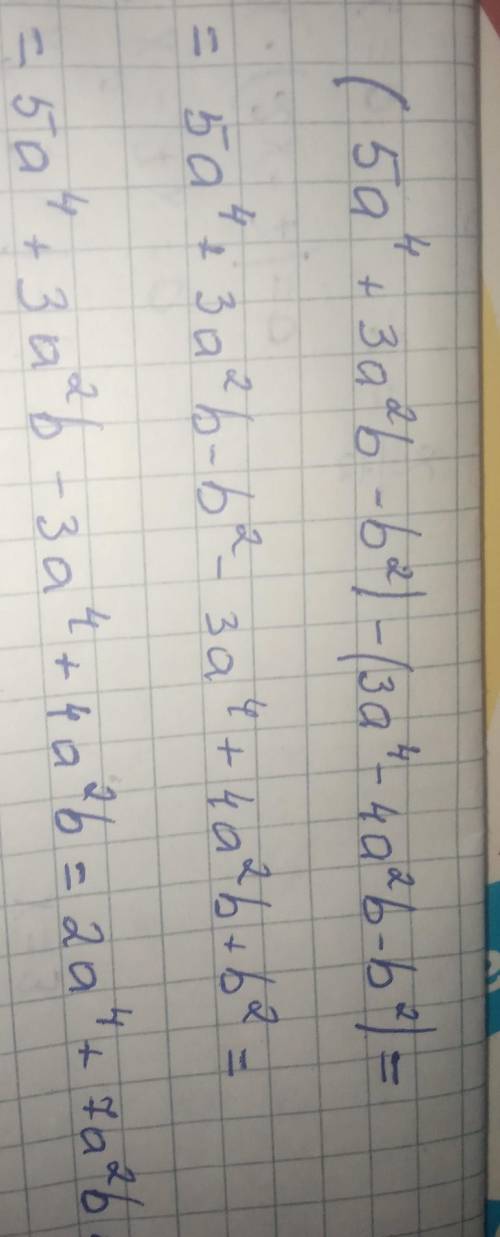 (5a⁴ + 3a²b - b²) - (3a⁴ - 4a²b - b²) =
= 5a⁴ + 3a²b - b² - 3a⁴ + 4a²b + b² =
= 5a⁴ + 3a²b - 3a⁴ + 4a²b = 2a⁴ + 7a²b